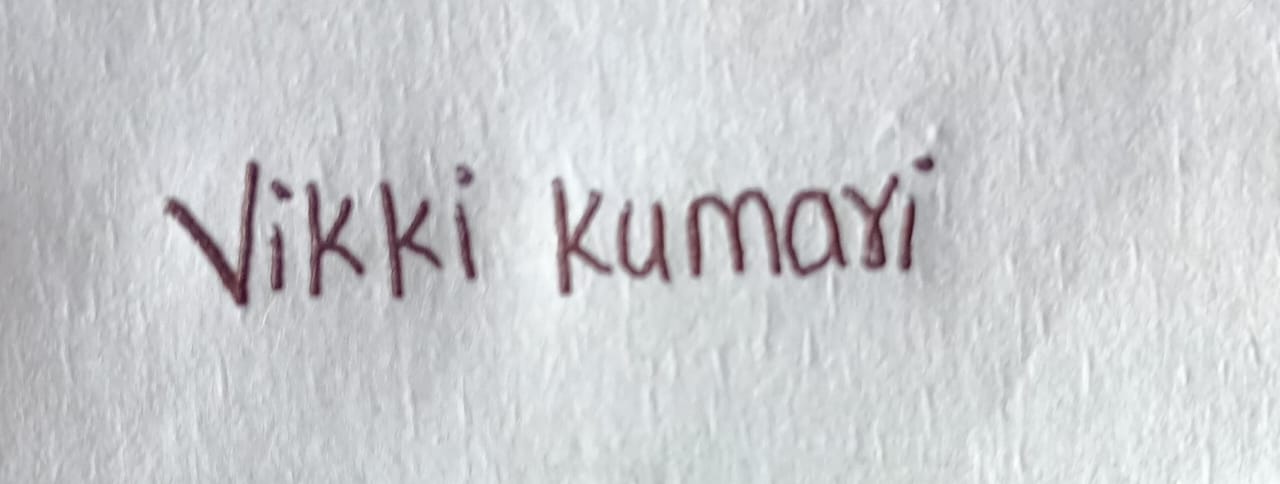 Vikki kumari